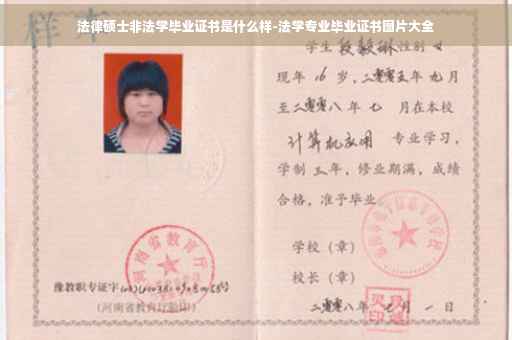 法律硕士非法学毕业证书是什么样-法学专业毕业证书图片大全
样本
学生 段毅琳 性别 女
现年 16 岁，二零零五年 九月
至二零零八年 七 月在本校
计算机应用 专业学习，
学制 三 年，修业期满，成绩
合格，准予毕业
学校（章）
校长（章）
二零零八年 七 月 一 日
河南省教育厅
豫教职专证字
(河南省教育厅验印)